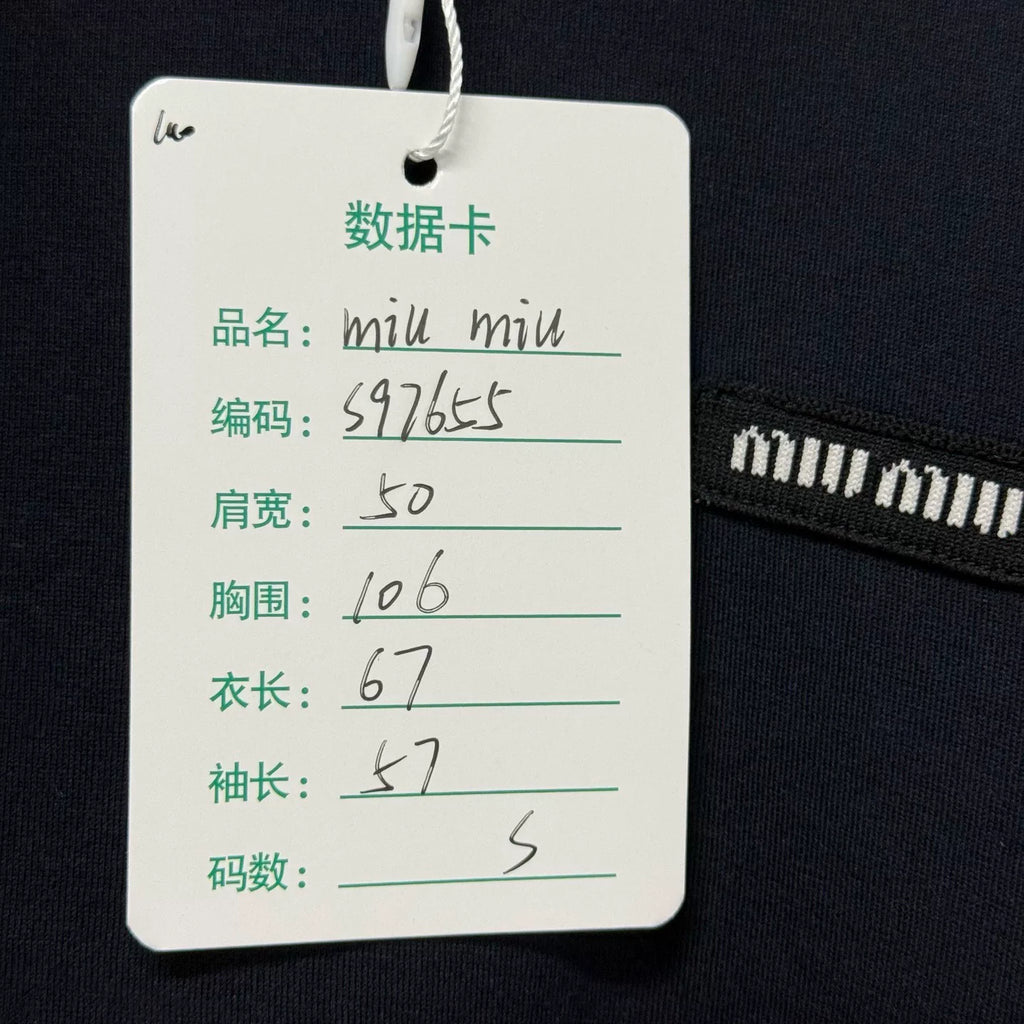 数据卡
品名: miu miu
编码: S97655
肩宽: 50
胸围: 106
衣长: 67
袖长: 57
码数: S
miu miu